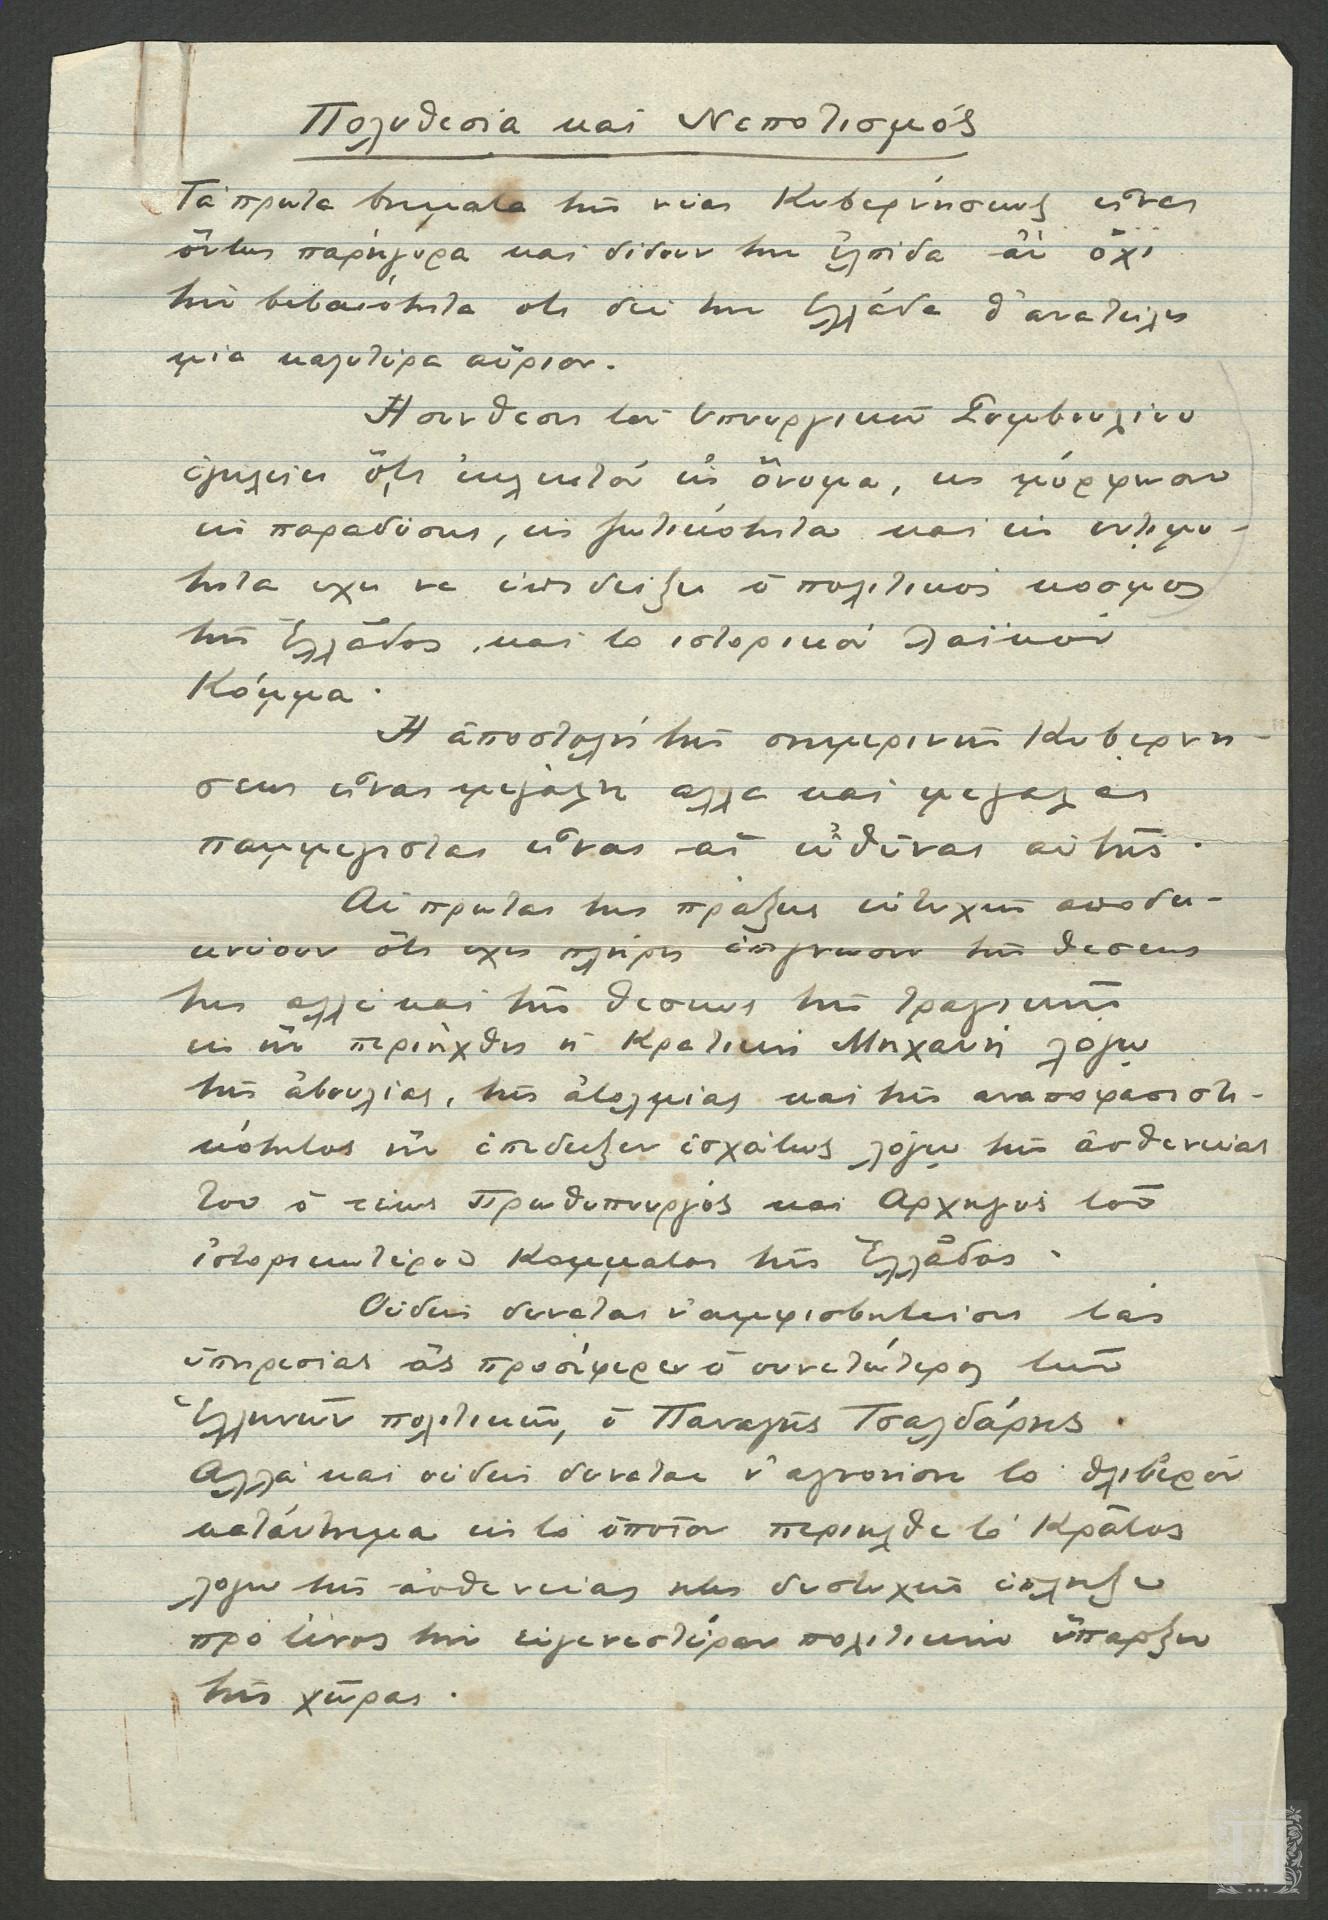 Πολυθεσία καὶ Νεποτισμός
Τὰ πρωτα βηματα τῆς νέας Κυβερνήσεως εἶναι
ὄντως παρήγορα και δίδουν την ἐλπίδα ἂν ὄχι
τὴν βεβαιότητα οτι διὰ την Ἑλλάδα θ' ανατείλη
μία καλυτέρα αὔριον.
Ἡ συνθεσις τοῦ Υπουργικοῦ Συμβουλίου
ὅτι ἐκλεκτὸν εἰς ὄνομα, εις μόρφωσιν
εἰς παραδόσεις, εἰς ζωτικότητα και εἰς εντιμο-
τητα εχει να ἐπιδείξη ὁ πολιτικος κοσμος
τῆς Ἑλλάδος και το ιστορικὸν λαϊκὸν
Κόμμα.
Ἡ ἀποστολή τῆς σημερινῆς Κυβερνη-
σεως εἶναι μεγάλη αλλα καὶ μεγάλαι
παμμεγισται εἶναι αἱ εὐθῦναι αὐτῆς.
Αἱ πρωται της πράξεις εὐτυχῶς αποδει-
κνύουν ὅτι εχει πλήρη ἐπίγνωσιν τῆς θεσεως
της αλλὰ καὶ τῆς θεσεως τῆς τραγικῆς
εις ἣν περιήχθη ἡ Κρατικὴ Μηχανὴ λόγῳ
τῆς ἀβουλίας, τῆς ἀτολμίας καὶ τῆς αναποφασιστι-
κότητος ἣν ἐπεδειξεν ἐσχάτως λόγῳ τῆς ἀσθενείας
του ὁ τέως Πρωθυπουργός και Αρχηγὸς τοῦ
ἱστορικωτέρου Κομματος τῆς Ἑλλάδος.
Οὐδεὶς δυναται ν' αμφισβητήσῃ τὰς
ὑπηρεσίας ἃς προσέφερεν ὁ συνετώτερος τῶν
Ἑλλήνων πολιτικῶν, ὁ Παναγῆς Τσαλδάρης.
Αλλὰ και οὐδεὶς δυναται ν' αγνοήση το θλιβερὸν
κατάντημα εις τὸ ὁποῖον περιηλθε τὸ Κράτος
λογω τῆς ασθενείας ητις δυστυχῶς επληξε
προ τινος την εὐγενεστέραν πολιτικὴν ὕπαρξιν
τῆς χώρας.